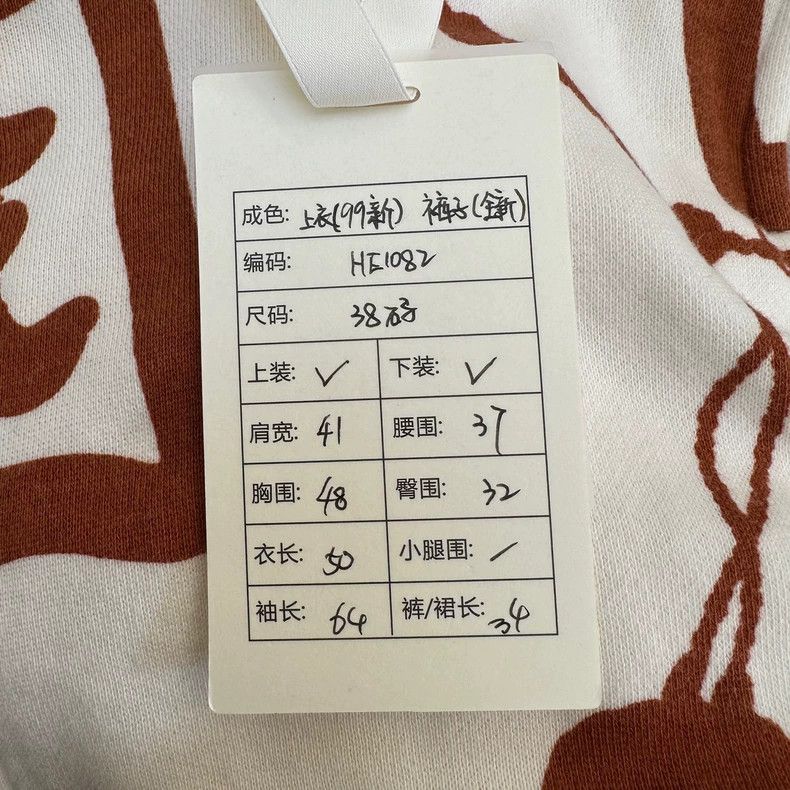 成色: 上衣(99新) 裤子(全新)
编码: HE1082
尺码: 38码子
上装: ✓ 下装: ✓
肩宽: 41 腰围: 37
胸围: 48 臀围: 32
衣长: 50 小腿围: /
袖长: 64 裤/裙长: 34